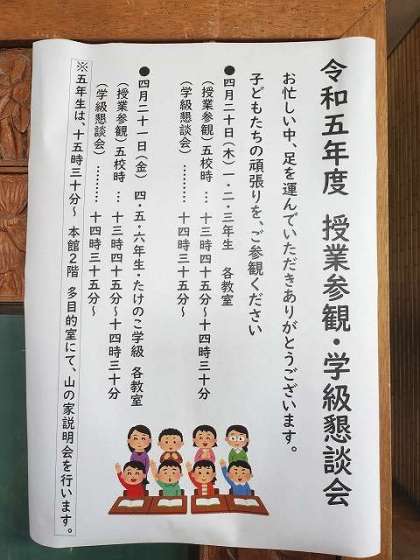 令和五年度 授業参観・学級懇談会
お忙しい中、足を運んでいただきありがとうございます。
子どもたちの頑張りを、ご参観ください
●四月二十日(木)一・二・三年生 各教室
(授業参観)五校時 … 十三時四十五分~十四時三十分
(学級懇談会)……… 十四時三十五分~
●四月二十一日(金) 四・五・六年生・たけのこ学級 各教室
(授業参観)五校時 … 十三時四十五分~十四時三十分
(学級懇談会)……… 十四時三十五分~
※五年生は、十五時三十分~ 本館2階 多目的室にて、山の家説明会を行います。